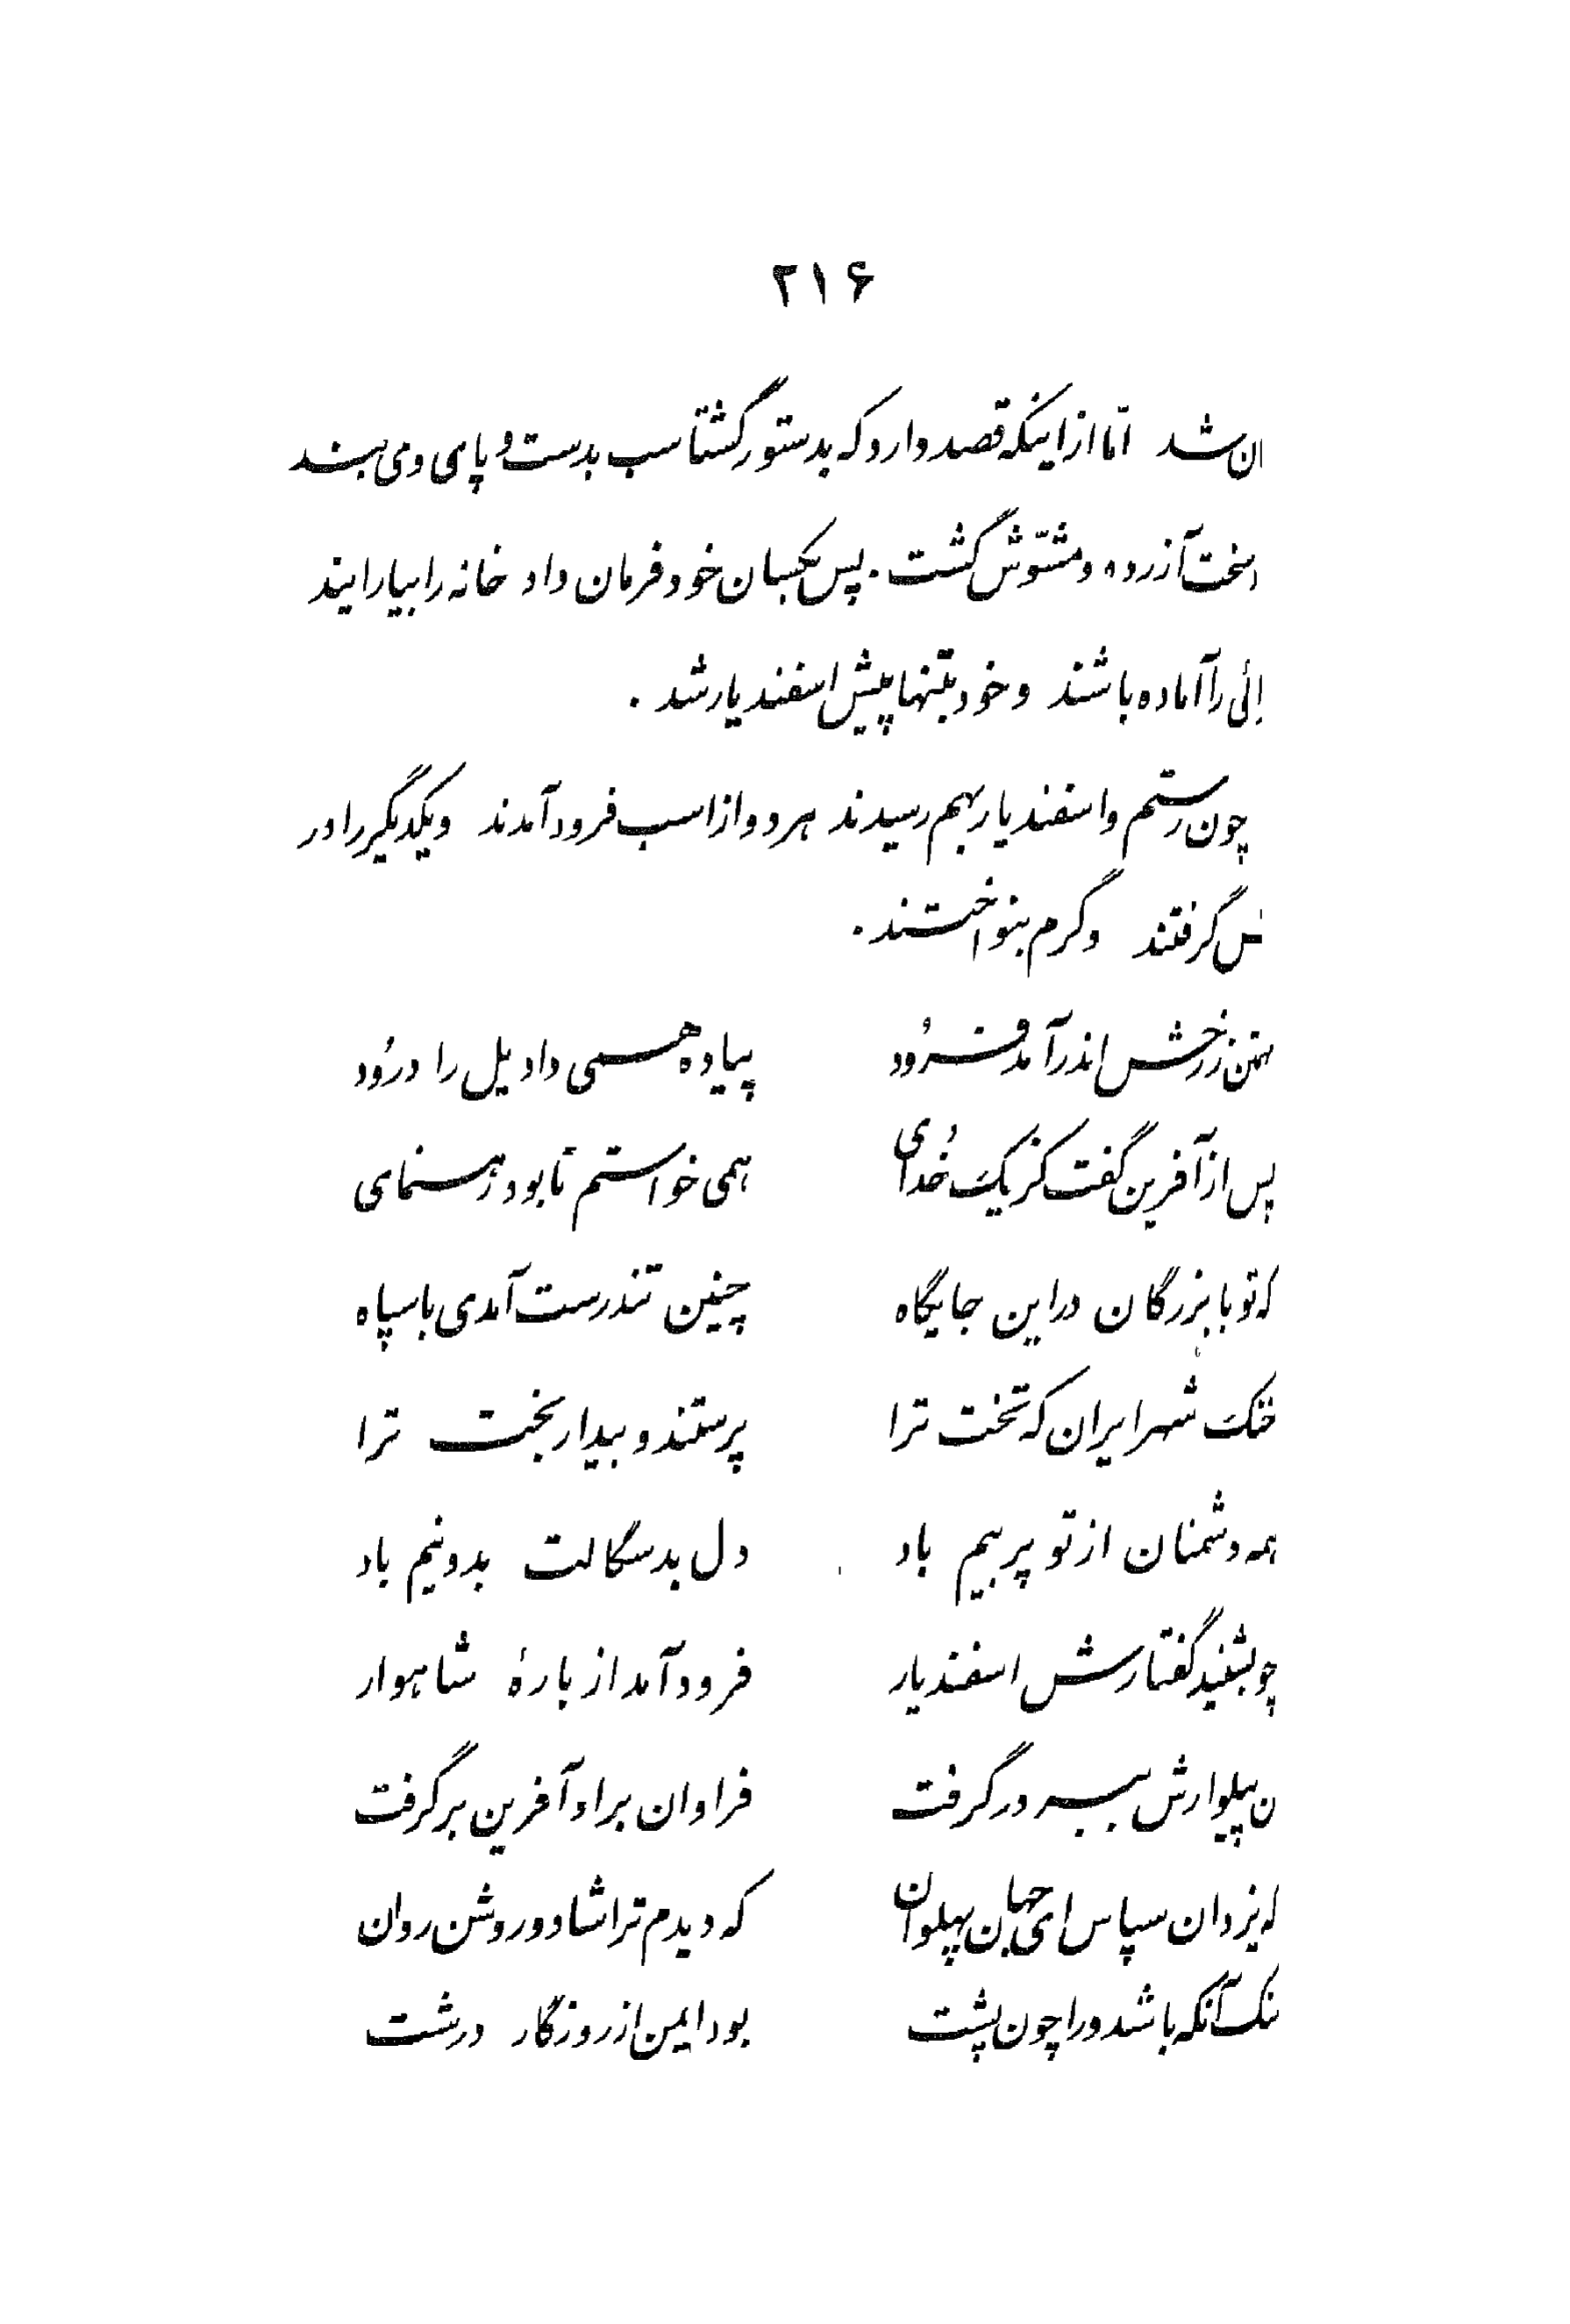 ۲۱۶
شد امّا از اینکه قصد دارد که بدستور گشتاسب بدست و پای وی بند
سخت آزرده و مشوّش گشت . پس بکسان خود فرمان داد خانه را بیارایند
را آماده باشند و خود بتنها پیش اسفندیار شد .
چون رستم و اسفندیار بهم رسیدند هر دو از اسب فرود آمدند و یکدیگر را در
گرفتند و گرم بنواختند .
ز رخش اندر آمد فرُود پیاده همی داد یل را درُود
پس از آفرین گفت کز یک خُدای همی خواستم تا بود رهنمای
که تو با بزرگان در این جایگاه چنین تندرست آمدی با سپاه
خنک شهر ایران که تخت ترا پرستند و بیدار بخت ترا
همه دشمنان از تو پر بیم باد دل بدسگالت بدو نیم باد
چو بشنید گفتارش اسفندیار فرود آمد از بارهٔ شاهوار
پیلوارش ببر در گرفت فراوان بر او آفرین بر گرفت
یزدان سپاس ای جهان پهلوان که دیدم ترا شاد و روشن روان
آنکه باشد ورا چون پشت بود ایمن از روزگار درشت